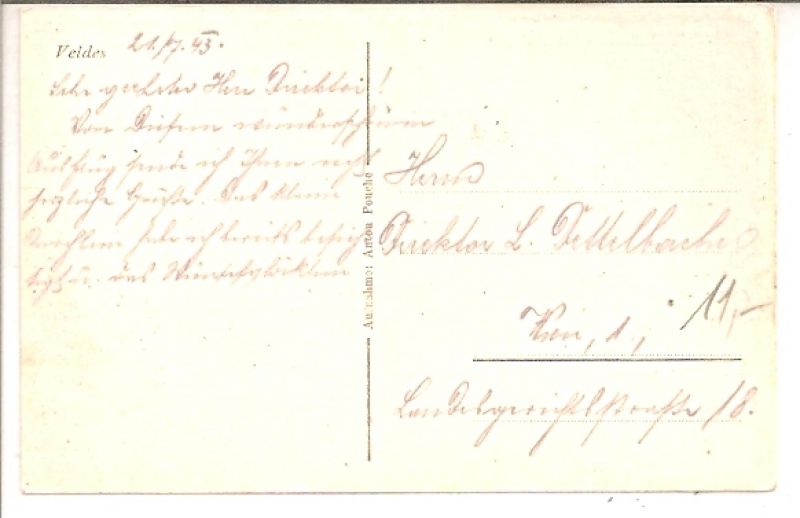 Veldes 21./7.43.
Sehr geehrter Herr Direktor!
Von diesem wunderschönen
Ausflug sende ich Ihnen recht
herzliche Grüße. Das kleine
Kirchlein habe ich bereits besich
tigt u. das Wunschglöcklein
Aufnahme: Anton Pouche
Herrn
Direktor L. Dettelbacher
Wien, 1,
11,-
Landesgerichtsstraße 18.